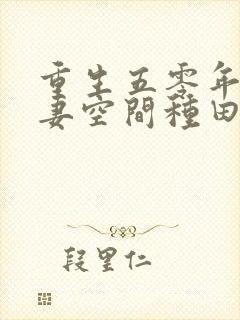 重生五零年
妻空間種田
段里仁